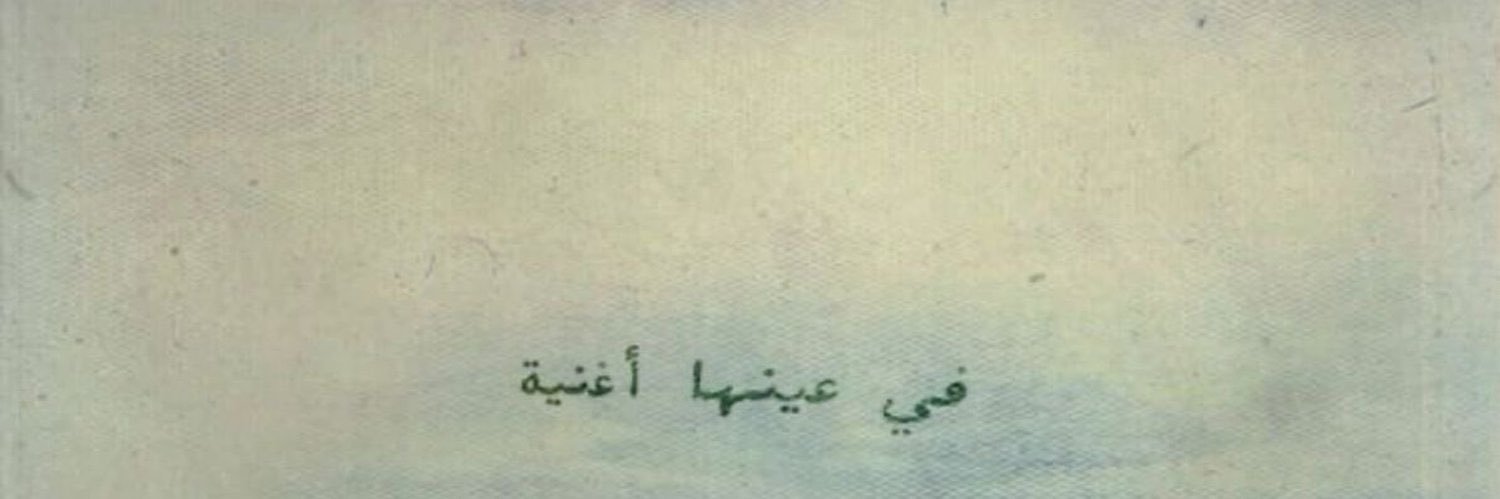 في عينها أغنية